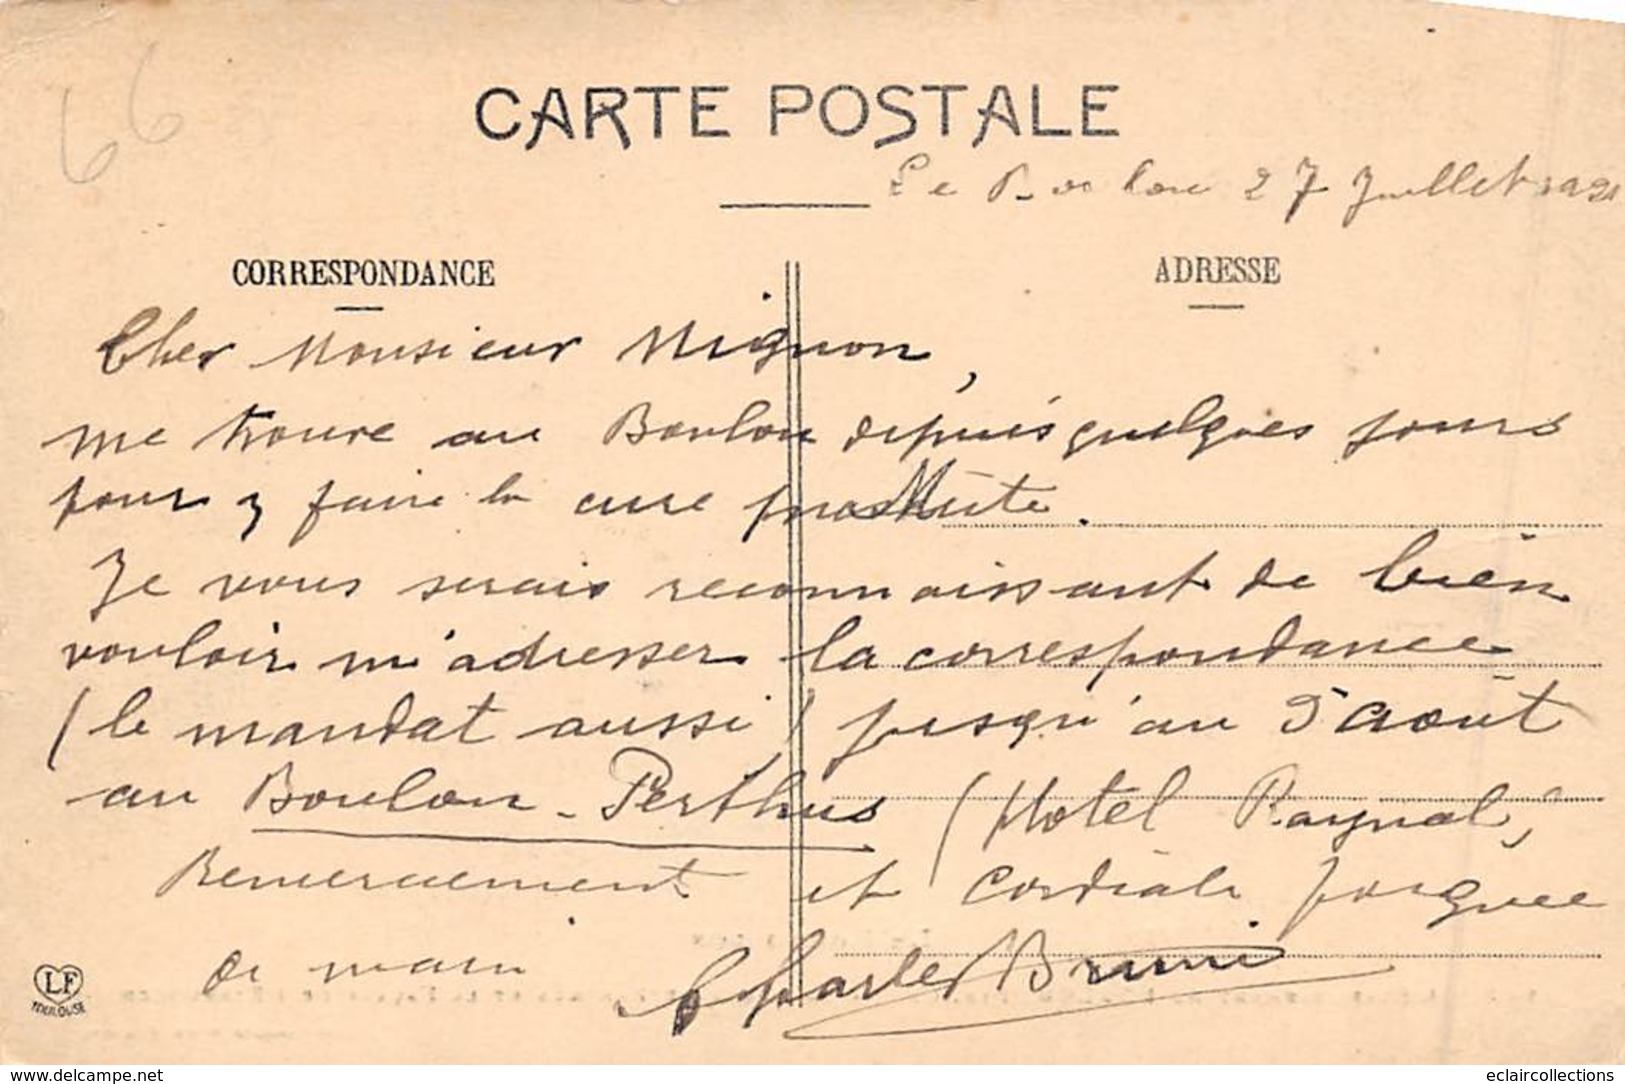 66
CARTE POSTALE
Le Boulou 27 Juillet 1921
CORRESPONDANCE
ADRESSE
Cher Monsieur Mignon,
me trouve au Boulou depuis quelques jours
pour y faire la cure
Je vous serais reconnaissant de bien
vouloir m'adresser la correspondance
(le mandat aussi) jusqu'au 5 août
au Boulou-Perthus (Hotel Raynal)
Remerciement et cordiale poignee
de main Charles Bruni
LF
TOULOUSE
www.delcampe.net
eclaircollections